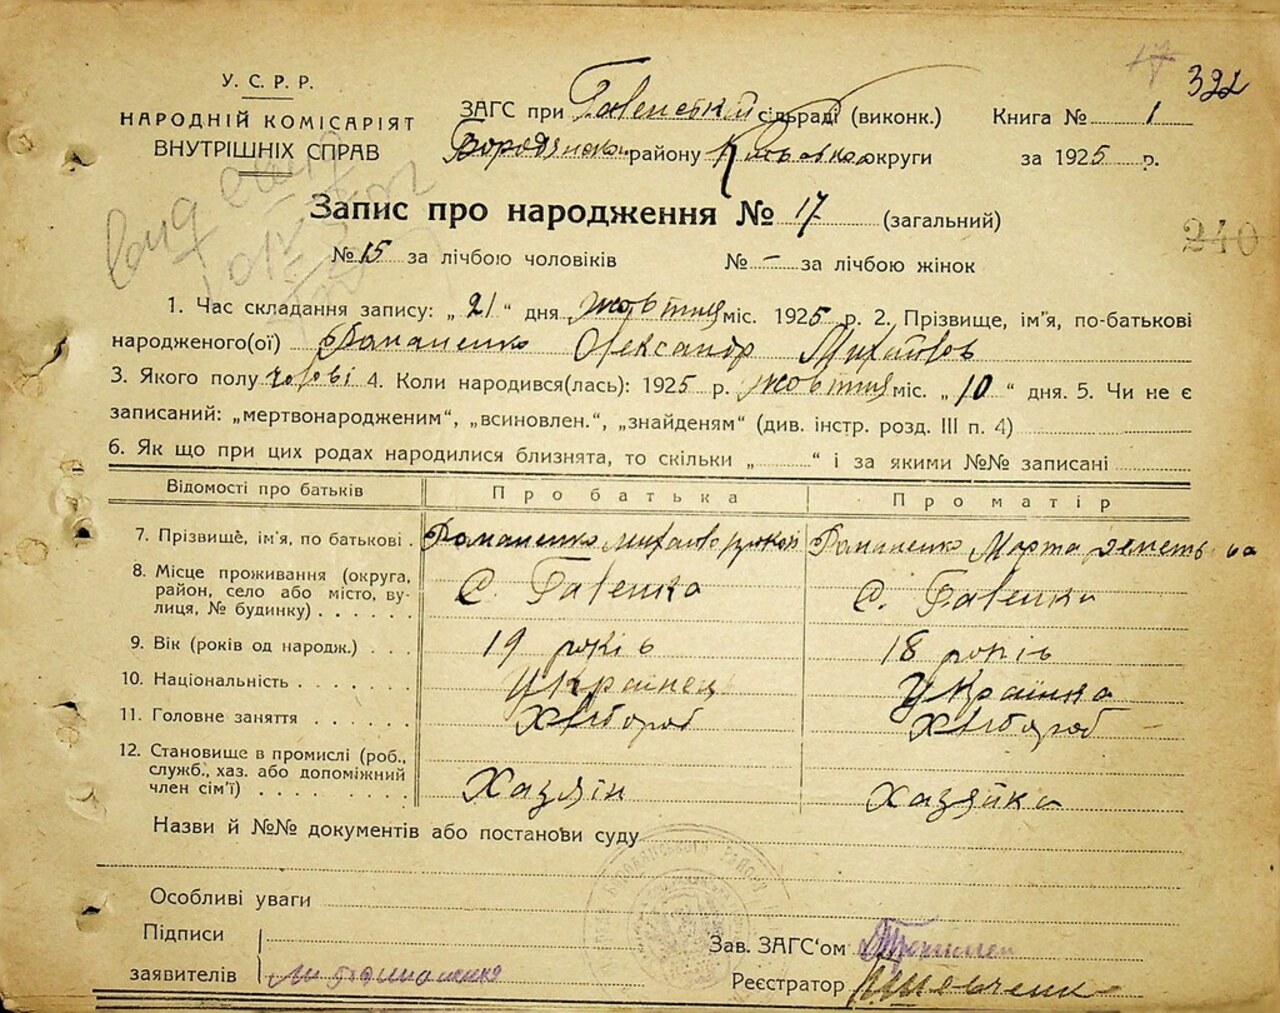 17 322
У. С. Р. Р.
НАРОДНІЙ КОМІСАРІЯТ
ВНУТРІШНІХ СПРАВ
ЗАГС при сільраді (виконк.)
району округи
Книга № 1
за 1925 р.
Запис про народження № 17 (загальний)
240
№ 15 за лічбою чоловіків № — за лічбою жінок
1. Час складання запису: „ 21 “ дня жовтня міс. 1925 р. 2. Прізвище, ім'я, по-батькові
народженого(ої) Романенко Олександр Михайлов
3. Якого полу 4. Коли народився(лась): 1925 р. жовтня міс. „ 10 “ дня. 5. Чи не є
записаний: „мертвонародженим“, „всиновлен.“, „знайденям“ (див. інстр. розд. III п. 4)
6. Як що при цих родах народилися близнята, то скільки „ “ і за якими №№ записані
Відомості про батьків Про батька Про матір
7. Прізвище, ім'я, по батькові Романенко Романенко Марта
8. Місце проживання (округа,
район, село або місто, ву-
лиця, № будинку) С. С.
9. Вік (років од народж.) 19 років 18 років
10. Національність Українець Українка
11. Головне заняття Хлібороб Хлібороб
12. Становище в промислі (роб.,
служб., хаз. або допоміжний
член сім'ї) Хазяїн Хазяйка
Назви й №№ документів або постанови суду
Особливі уваги
Підписи
заявителів М Романенко
Зав. ЗАГС'ом
Реєстратор Шевченко